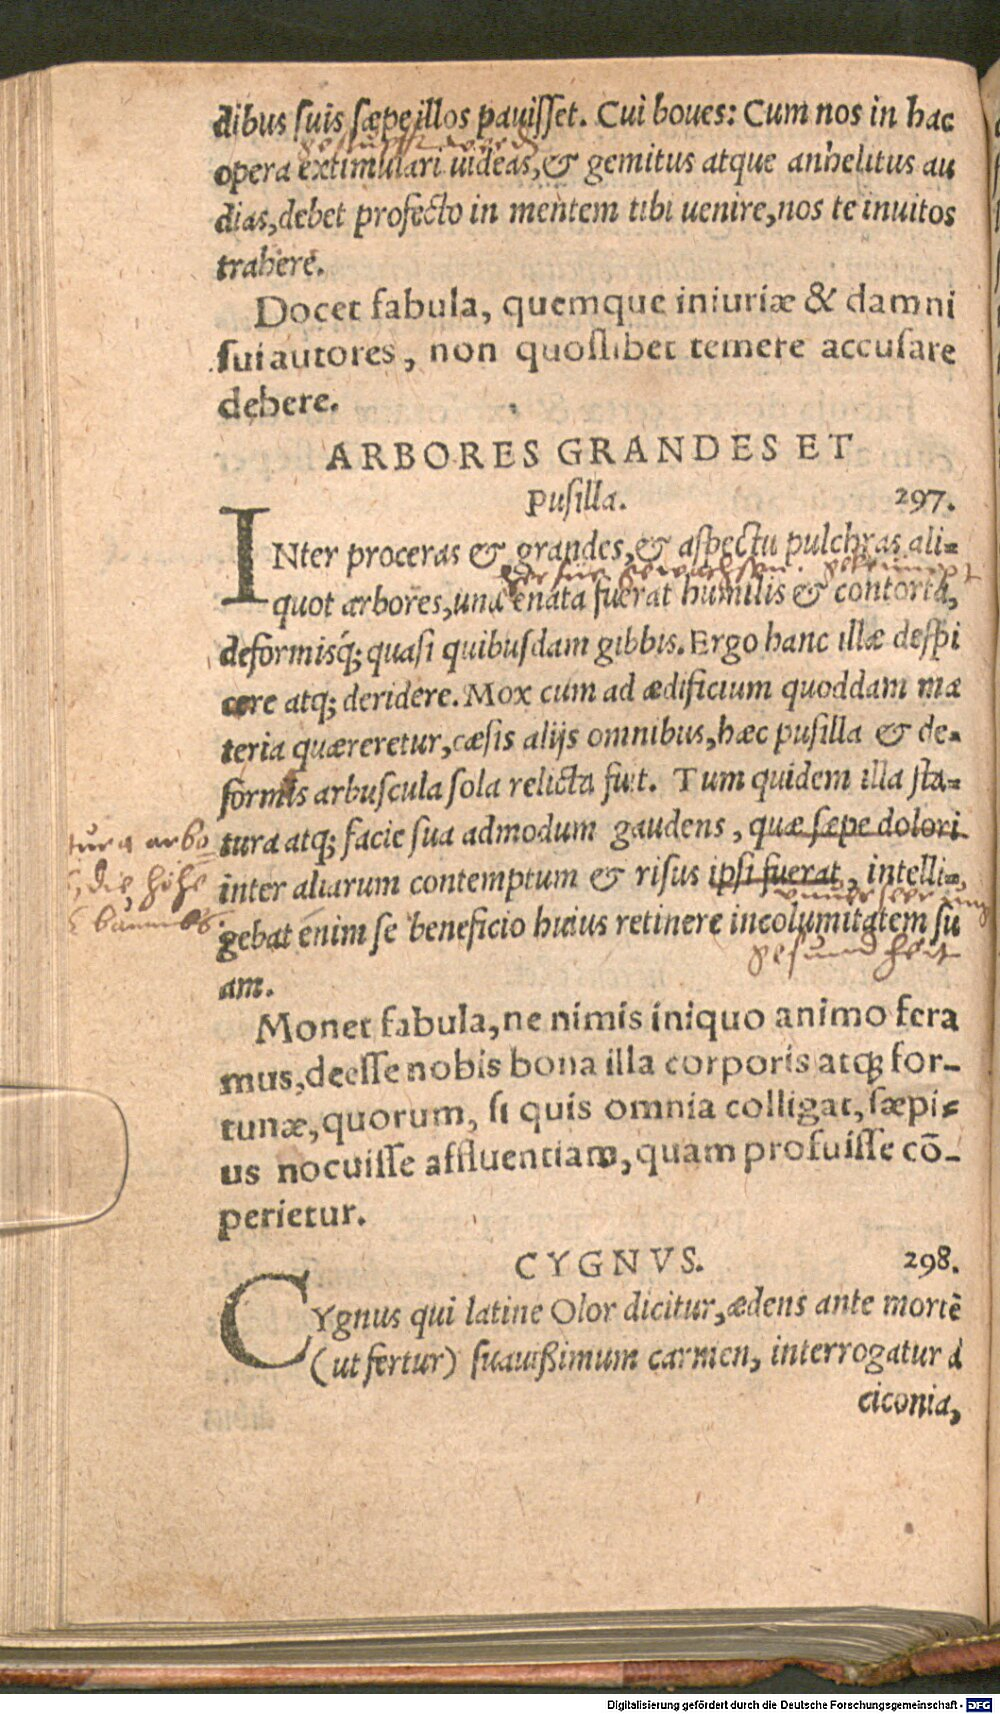 dibus suis sæpe illos pauisset. Cui boues: Cum nos in hac
opera extimulari uideas, & gemitus atque anhelitus au
dias, debet profecto in mentem tibi uenire, nos te inuitos
trahere.
Docet fabula, quemque iniuriæ & damni
sui autores, non quoslibet temere accusare
debere.
ARBORES GRANDES ET
pusilla. 297.
INter proceras & grandes, & aspectu pulchras ali=
quot arbores, una enata fuerat humilis & contorta,
deformisq́; quasi quibusdam gibbis. Ergo hanc illæ despi
cere atq; deridere. Mox cum ad ædificium quoddam ma
teria quæreretur, cæsis alijs omnibus, hæc pusilla & de=
formis arbuscula sola relicta fuit. Tum quidem illa sta=
tura atq; facie sua admodum gaudens, quæ sæpe dolori
inter aliarum contemptum & risus ipsi fuerat, intelli=
gebat enim se beneficio huius retinere incolumitatem su
gesundheit
am.
Monet fabula, ne nimis iniquo animo fera
mus, deesse nobis bona illa corporis atq; for-
tunæ, quorum, si quis omnia colligat, sæpi=
us nocuisse affluentiam, quam profuisse cō-
perietur.
CYGNVS. 298.
CYgnus qui latine Olor dicitur, ædens ante mortē
(ut fertur) suauißimum carmen, interrogatur à
ciconia,
die höhe
Digitalisierung gefördert durch die Deutsche Forschungsgemeinschaft - DFG